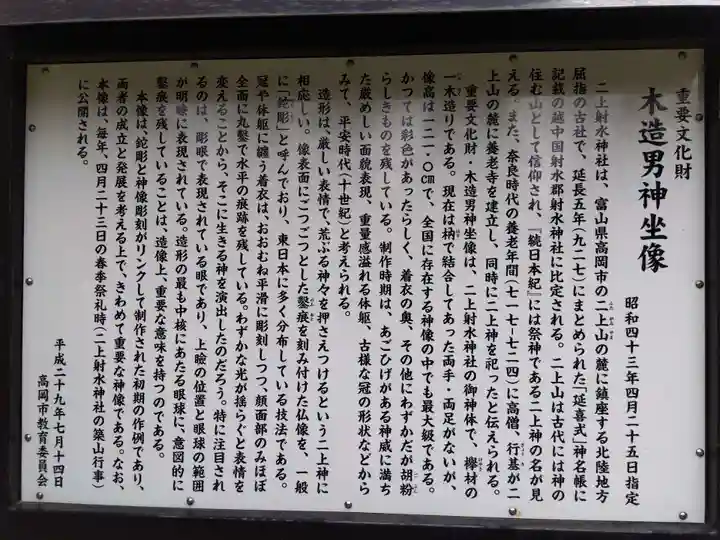 重要文化財
木造男神坐像
昭和四十三年四月二十五日指定
二上射水神社は、富山県高岡市の二上山の麓に鎮座する北陸地方
屈指の古社で、延長五年(九二七)にまとめられた「延喜式」神名帳に
記載の越中国射水郡射水神社に比定される。二上山は古代には神の
住む山として信仰され、『続日本紀』には祭神である二上神の名が見
える。また、奈良時代の養老年間(七一七~七二四)に高僧、行基が二
上山の麓に養老寺を建立し、同時に二上神を祀ったと伝えられる。
重要文化財・木造男神坐像は、二上射水神社の御神体で、欅材の
一木造りである。現在は枘で結合してあった両手・両足がないが、
像高は一二一・〇㎝で、全国に存在する神像の中でも最大級である。
かつては彩色があったらしく、着衣の奥、その他にわずかだが胡粉
らしきものを残している。制作時期は、あごひげがある神威に満ち
た厳めしい面貌表現、重量感溢れる体躯、古様な冠の形状などから
みて、平安時代(十世紀)と考えられる。
造形は、厳しい表情で、荒ぶる神々を押さえつけるという二上神に
相応しい。像表面にごつごつとした鑿痕を刻み付けた仏像を、一般
に「鉈彫」と呼んでおり、東日本に多く分布している技法である。
冠や体躯に纏う着衣は、おおむね平滑に彫刻しつつ、顔面部のみほぼ
全面に丸鑿で水平の痕跡を残している。わずかな光が揺らぐと表情を
変えることから、そこに生きる神を演出したのだろう。特に注目され
るのは、彫眼で表現されている眼であり、上瞼の位置と眼球の範囲
が明瞭に表現されている。造形の最も中核にあたる眼球に、意図的に
鑿痕を残していることは、造像上、重要な意味を持つのである。
本像は、鉈彫と神像彫刻がリンクして制作された初期の作例であり、
両者の成立と発展を考える上で、きわめて重要な神像である。なお、
本像は、毎年、四月二十三日の春季祭礼時(二上射水神社の築山行事)
に公開される。
平成二十九年七月十四日
高岡市教育委員会